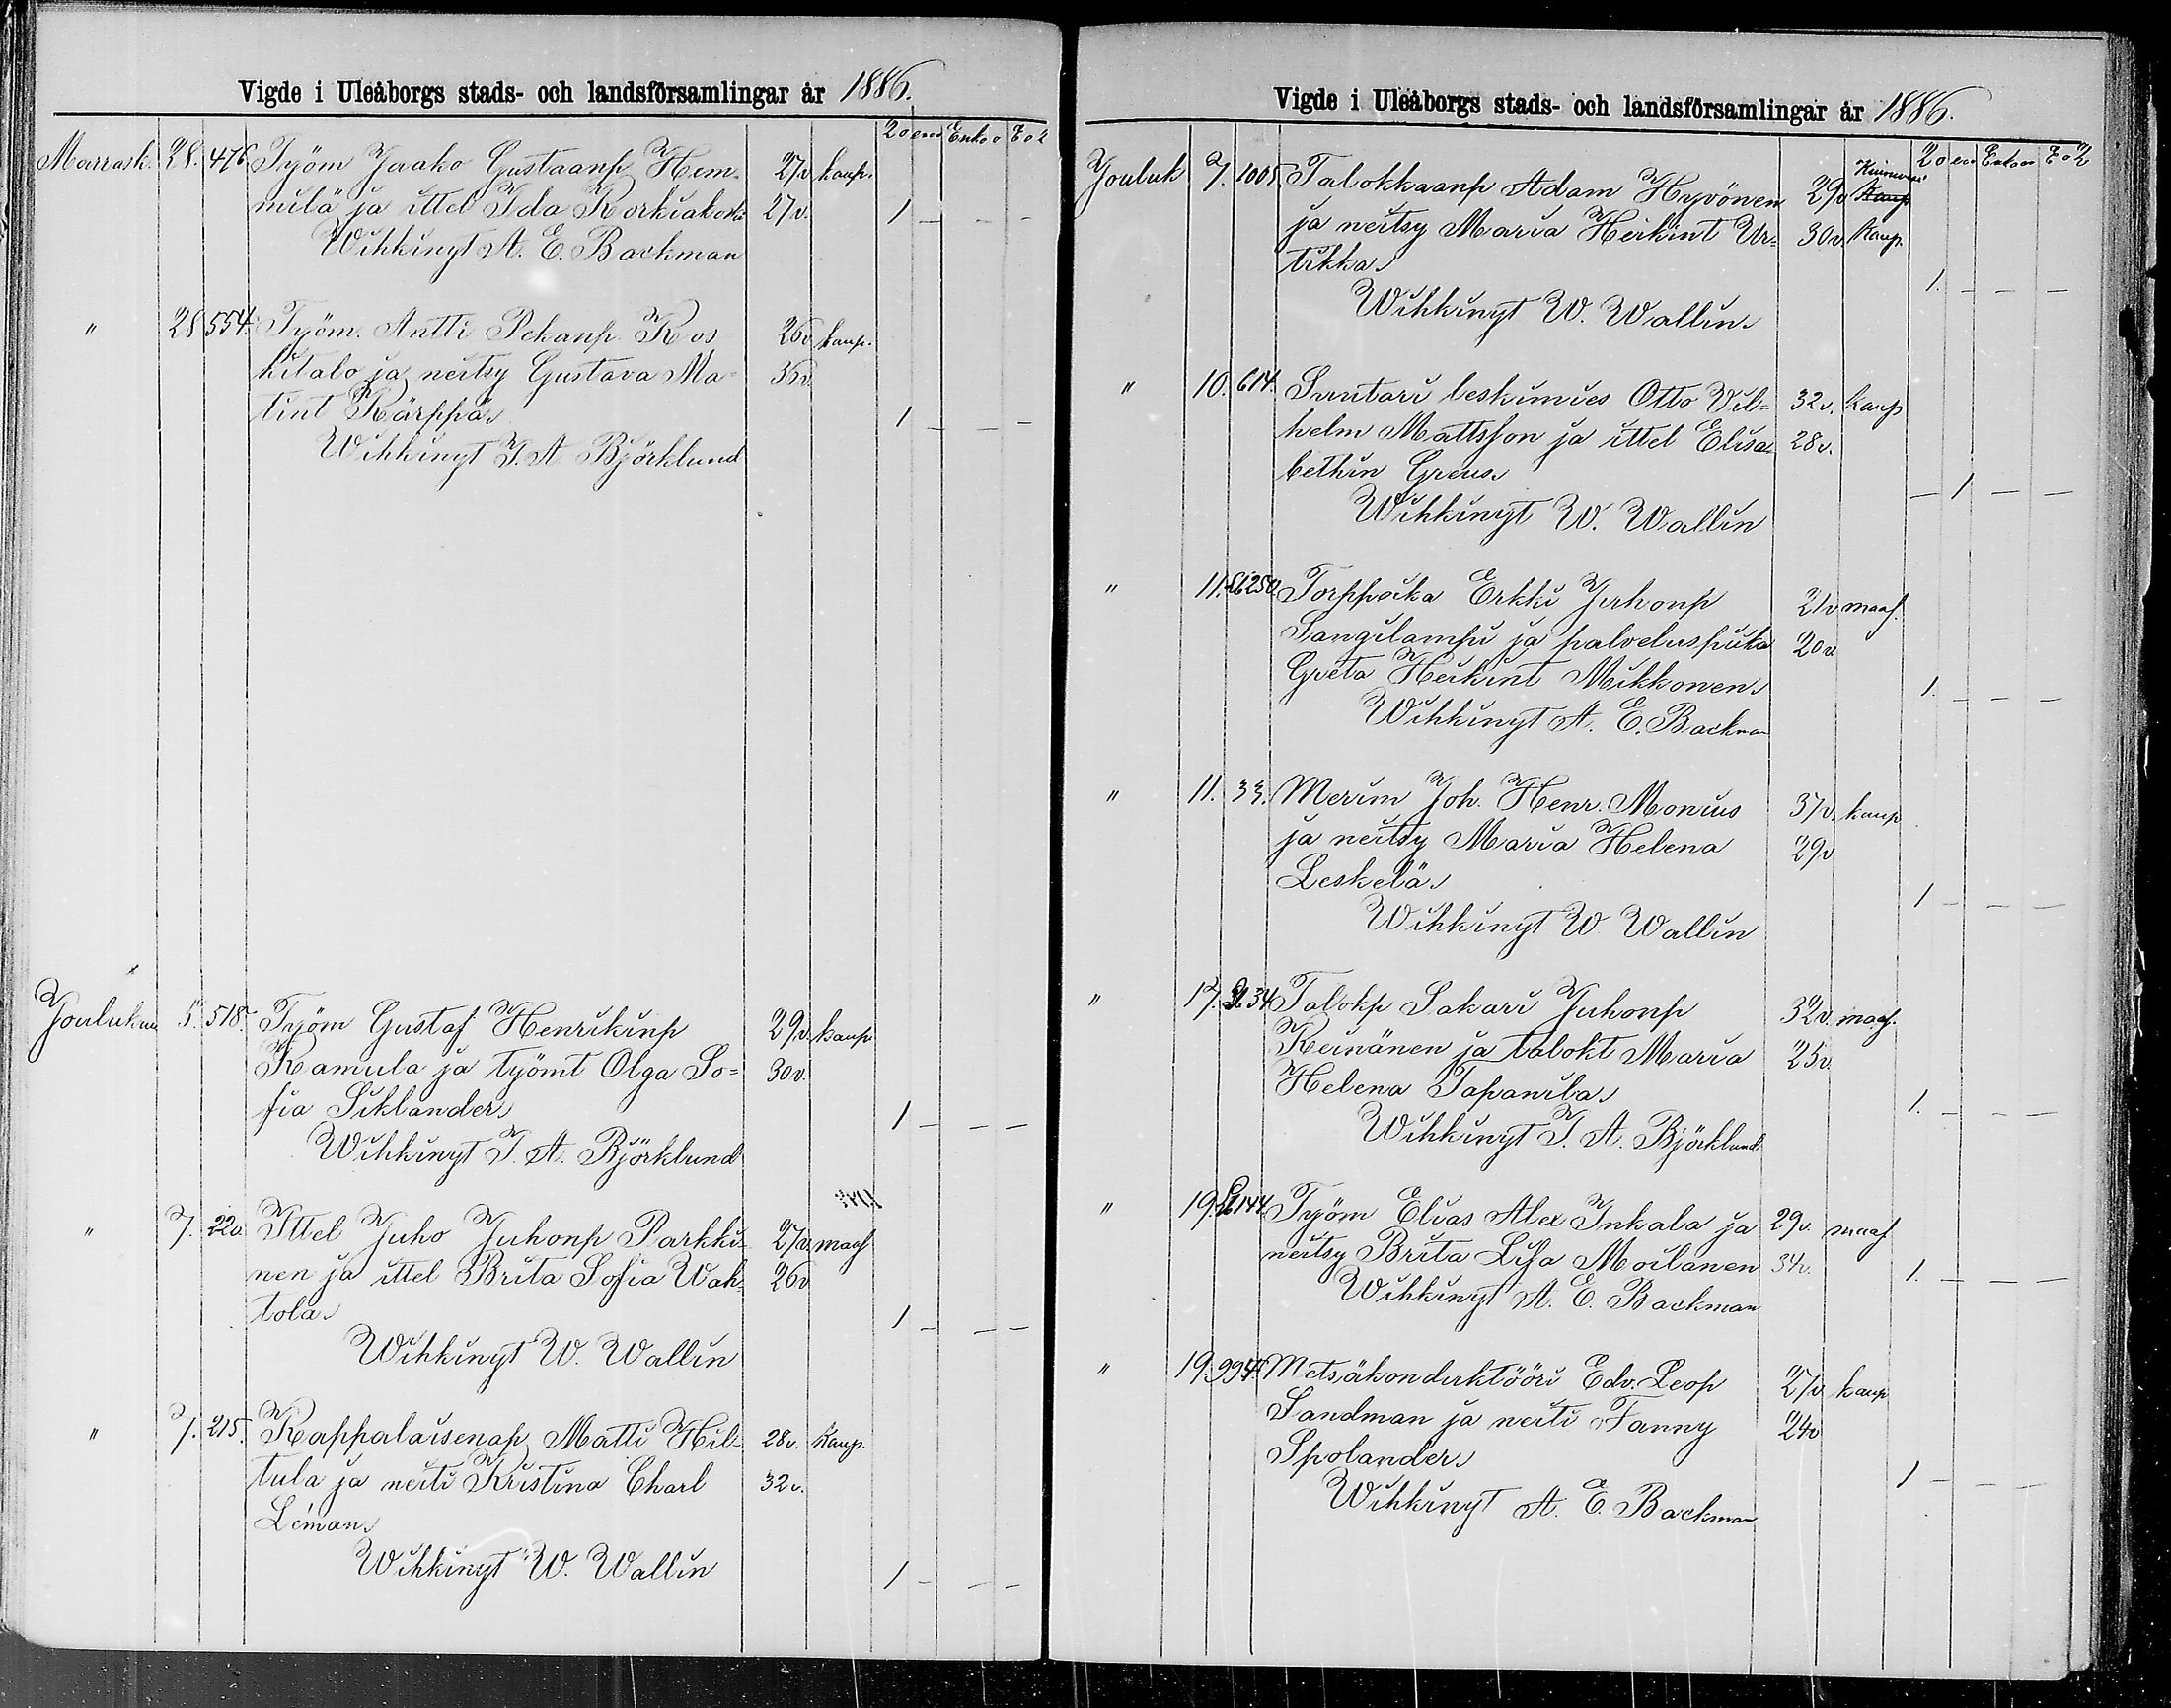 Vigde i Uleåborgs stads- och landsförsamlingar år 1886.
Marrask. 28. 476 Työm Jaako Gustaanp Hem- 27v kaup.
milä ja ittel Ida Korkiakoski 27v. 1 — — —
Wihkinyt A. E. Backman
" 28 554. Työm. Antti Pekanp. Kos 26v kaup.
kitalo ja neitsy Gustava Ma- 36v.
tint Kärppä. 1 — — —
Wihkinyt J. A. Björklund
Jouluk 5. 518. Työm Gustaf Henrikinp 29v. kaup
Kamula ja työmt Olga So= 30v.
fia Siklander. 1 — — —
Wihkinyt J. A. Björklund
" 7. 220. Ittel Juho Juhonp Parkki- 27v. maas
nen ja ittel Brita Sofia Wah- 26v
tola. 1 — — —
Wihkinyt W. Wallin
" 7. 215. Kappalaisenap. Matti Hil- 28v. Kaup.
tula ja neiti Kristina Charl 32v.
Léman.
Wihkinyt W. Wallin 1 — — —
Vigde i Uleåborgs stads- och landsförsamlingar år 1886.
Jouluk 7. 1005. Talokkaanp Adam Hyvönen 29v Kaup
ja neitsy Maria Heikint Ur= 30v. Kaup.
tikka. 1. — — —
Wihkinyt W. Wallin.
" 10. 614. Suutari leskimies Otto Vil= 32v. kaup
helm Mattsson ja ittel Elisa- 28v.
bethin Greus. — 1 — —
Wihkinyt W. Wallin
" 11. 250. Torppoika Erkki Juhonp 21v maas.
Sangilampi ja palveluspiika 20v.
Greta Heikint Mikkonen. 1. — — —
Wihkinyt A. E. Backman
" 11. 33. Merim Joh. Henr. Monius 37v. kaup
ja neitsy Maria Helena 29v
Leskelä. 1 — — —
Wihkinyt W. Wallin
" 17. 34 Talokp Sakari Juhonp 32v. maas.
Keinänen ja talokt Maria 25v.
Helena Tapanila. 1. — — —
Wihkinyt J. A. Björklund
" 19. 144. Työm Elias Alex Inkala ja 29v. maas
neitsy Brita Lisa Moilanen 34v. 1. — — —
Wihkinyt A. E. Backman
" 19. 994. Metsäkonduktööri Edv. Leop 27v kaup
Sandman ja neiti Fanny 24v
Spolander. 1 — — —
Wihkinyt A. E. Backman